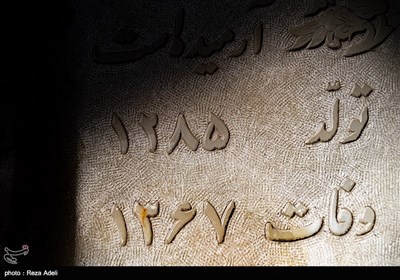 آرمیده است
تولّد ۱۲۸۵
وفات ۱۳۶۷
photo : Reza Adeli